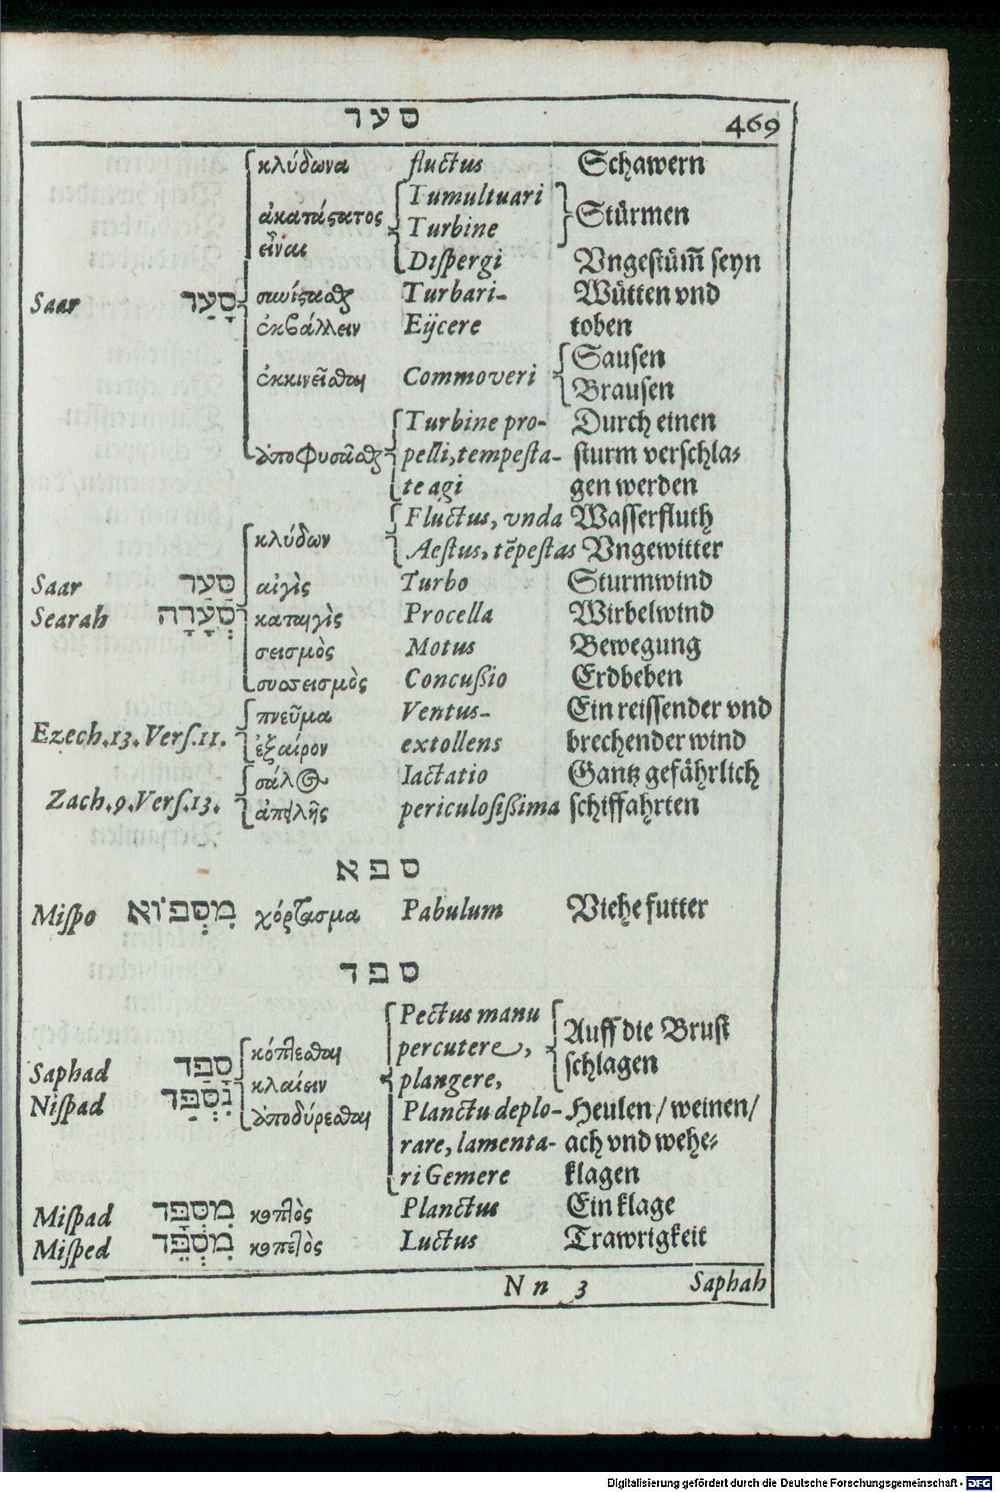 סער 469
κλύδωνα fluctus Schawern
Tumultuari
ἀκατάςατος Stürmen
Turbine
εἶναι
Dispergi Vngestüm̃ seyn
Saar סָעַר Turbari- Wütten vnd
ἐκβάλλειν Eijcere toben
Sausen
ἐκκινεῖσθαι Commoveri
Brausen
Turbine pro- Durch einen
ἀποφυσᾶσθαι pelli, tempesta- sturm verschla-
te agi gen werden
Fluctus, vnda Wasserfluth
κλύδων
Aestus, tẽpestas Vngewitter
Saar סַעַר αἰγὶς Turbo Sturmwind
Searah סְעָרָה καταιγὶς Procella Wirbelwind
σεισμὸς Motus Bewegung
συσσεισμὸς Concußio Erdbeben
πνεῦμα Ventus- Ein reissender vnd
Ezech. 13. Vers. 11. ἐξαίρον extollens brechender wind
σάλος Iactatio Gantz gefährlich
Zach. 9. Vers. 13. periculosißima schiffahrten
ספא
Mispo מִסְפּוֹא χόρτασμα Pabulum Viehe futter
ספד
Pectus manu
Auff die Brust
κόπτεσθαι percutere,
schlagen
Saphad סָפַד κλαίειν plangere,
Nispad נִסְפַּד ἀποδύρεσθαι Planctu deplo- Heulen / weinen /
rare, lamenta- ach vnd wehe-
ri Gemere klagen
Mispad מִסְפַּד κοπτὸς Planctus Ein klage
Misped מִסְפֵּד κοπετὸς Luctus Trawrigkeit
Nn 3 Saphah
Digitalisierung gefördert durch die Deutsche Forschungsgemeinschaft - DFG